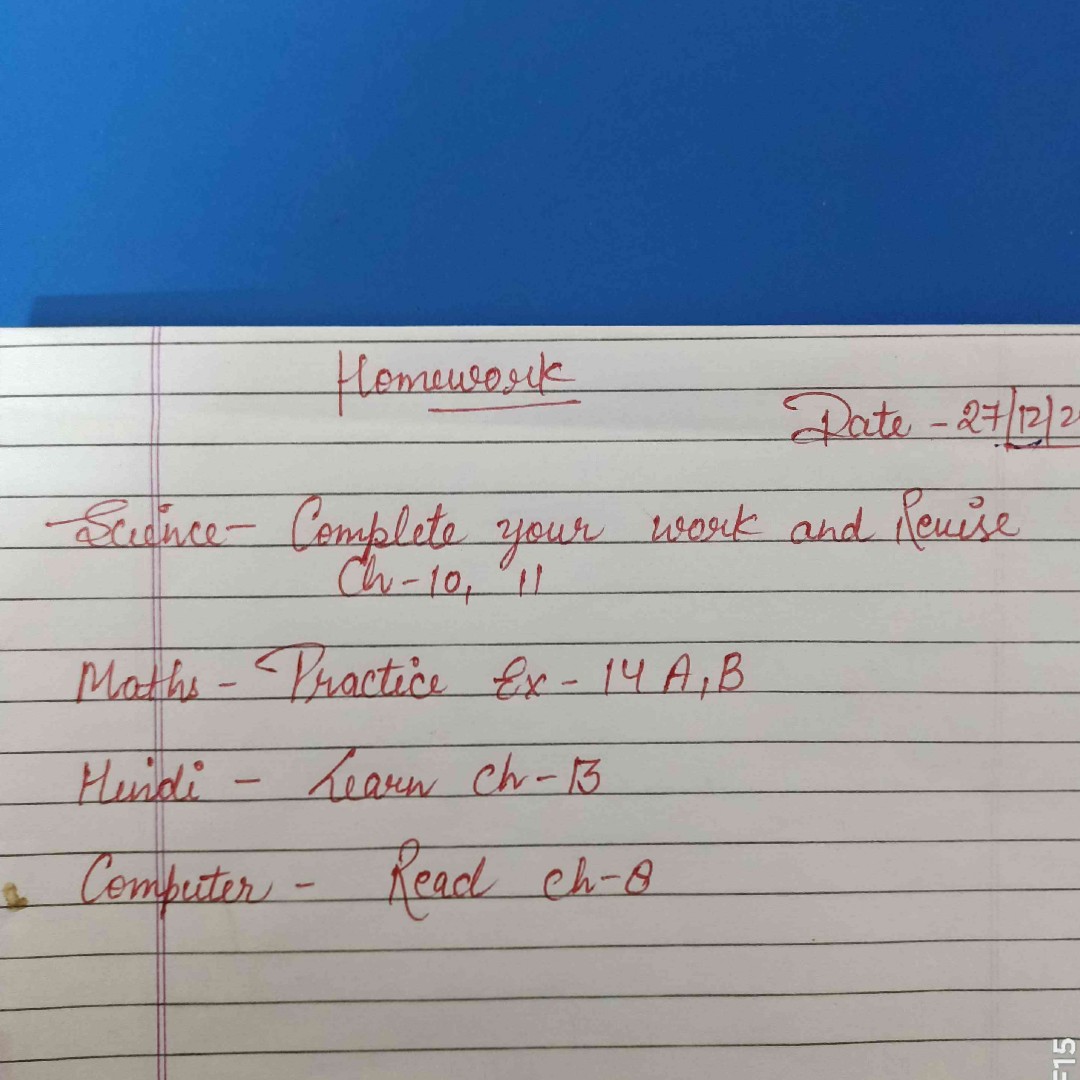 Homework
Date - 27/12/2
Science - Complete your work and Revise
Ch - 10, 11
Maths - Practice Ex - 14 A, B
Hindi - Learn Ch - 13
Computer - Read ch - 8
F15